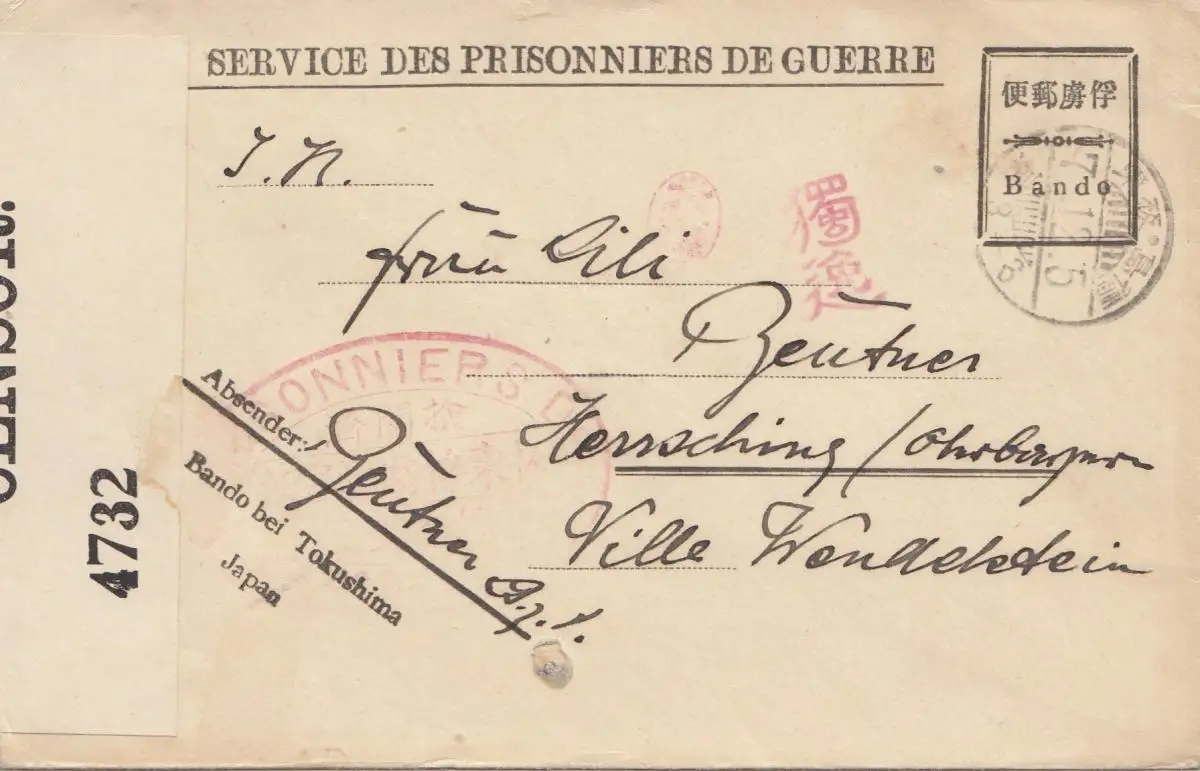 SERVICE DES PRISONNIERS DE GUERRE
俘虜郵便
Bando
I. H.
Frau Lili
Zeutner
Herrsching / Oberbayern
Villa Wendelstein
獨逸
ONNIERS D
Absender:
Zeutner
Bando bei Tokushima
Japan
CENSOR.
4732